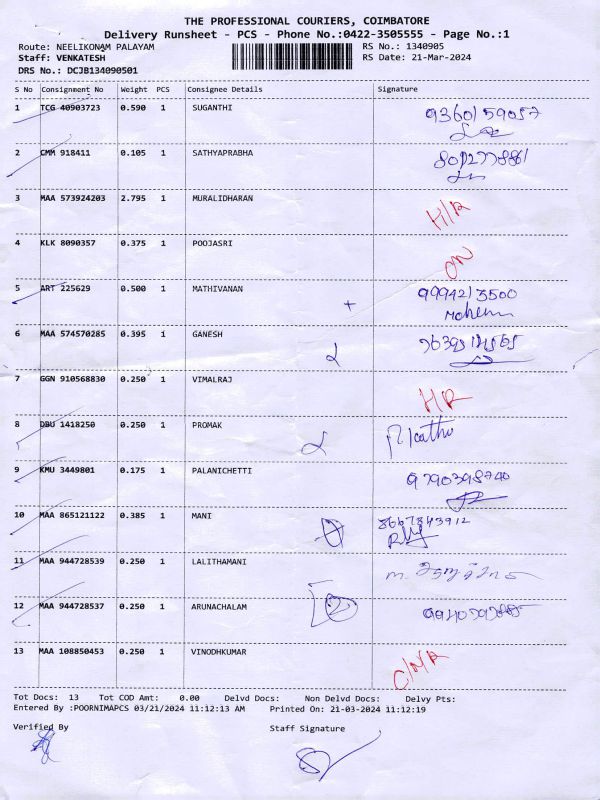 THE PROFESSIONAL COURIERS, COIMBATORE
Delivery Runsheet - PCS - Phone No.:0422-3505555 - Page No.:1
Route: NEELIKONAM PALAYAM RS No.: 1340905
Staff: VENKATESH RS Date: 21-Mar-2024
DRS No.: DCJB134090501
S No Consignment No Weight PCS Consignee Details Signature
1 TCG 40903723 0.590 1 SUGANTHI 9360159057
2 CMM 918411 0.105 1 SATHYAPRABHA
3 MAA 573924203 2.795 1 MURALIDHARAN
4 KLK 8090357 0.375 1 POOJASRI
5 ART 225629 0.500 1 MATHIVANAN 9994213500
6 MAA 574570285 0.395 1 GANESH
7 GGN 910568830 0.250 1 VIMALRAJ
8 DBU 1418250 0.250 1 PROMAK
9 KMU 3449801 0.175 1 PALANICHETTI 9790398740
10 MAA 865121122 0.385 1 MANI 8667843912
11 MAA 944728539 0.250 1 LALITHAMANI
12 MAA 944728537 0.250 1 ARUNACHALAM
13 MAA 108850453 0.250 1 VINODHKUMAR
Tot Docs: 13 Tot COD Amt: 0.00 Delvd Docs: Non Delvd Docs: Delvy Pts:
Entered By :POORNIMAPCS 03/21/2024 11:12:13 AM Printed On: 21-03-2024 11:12:19
Verified By Staff Signature